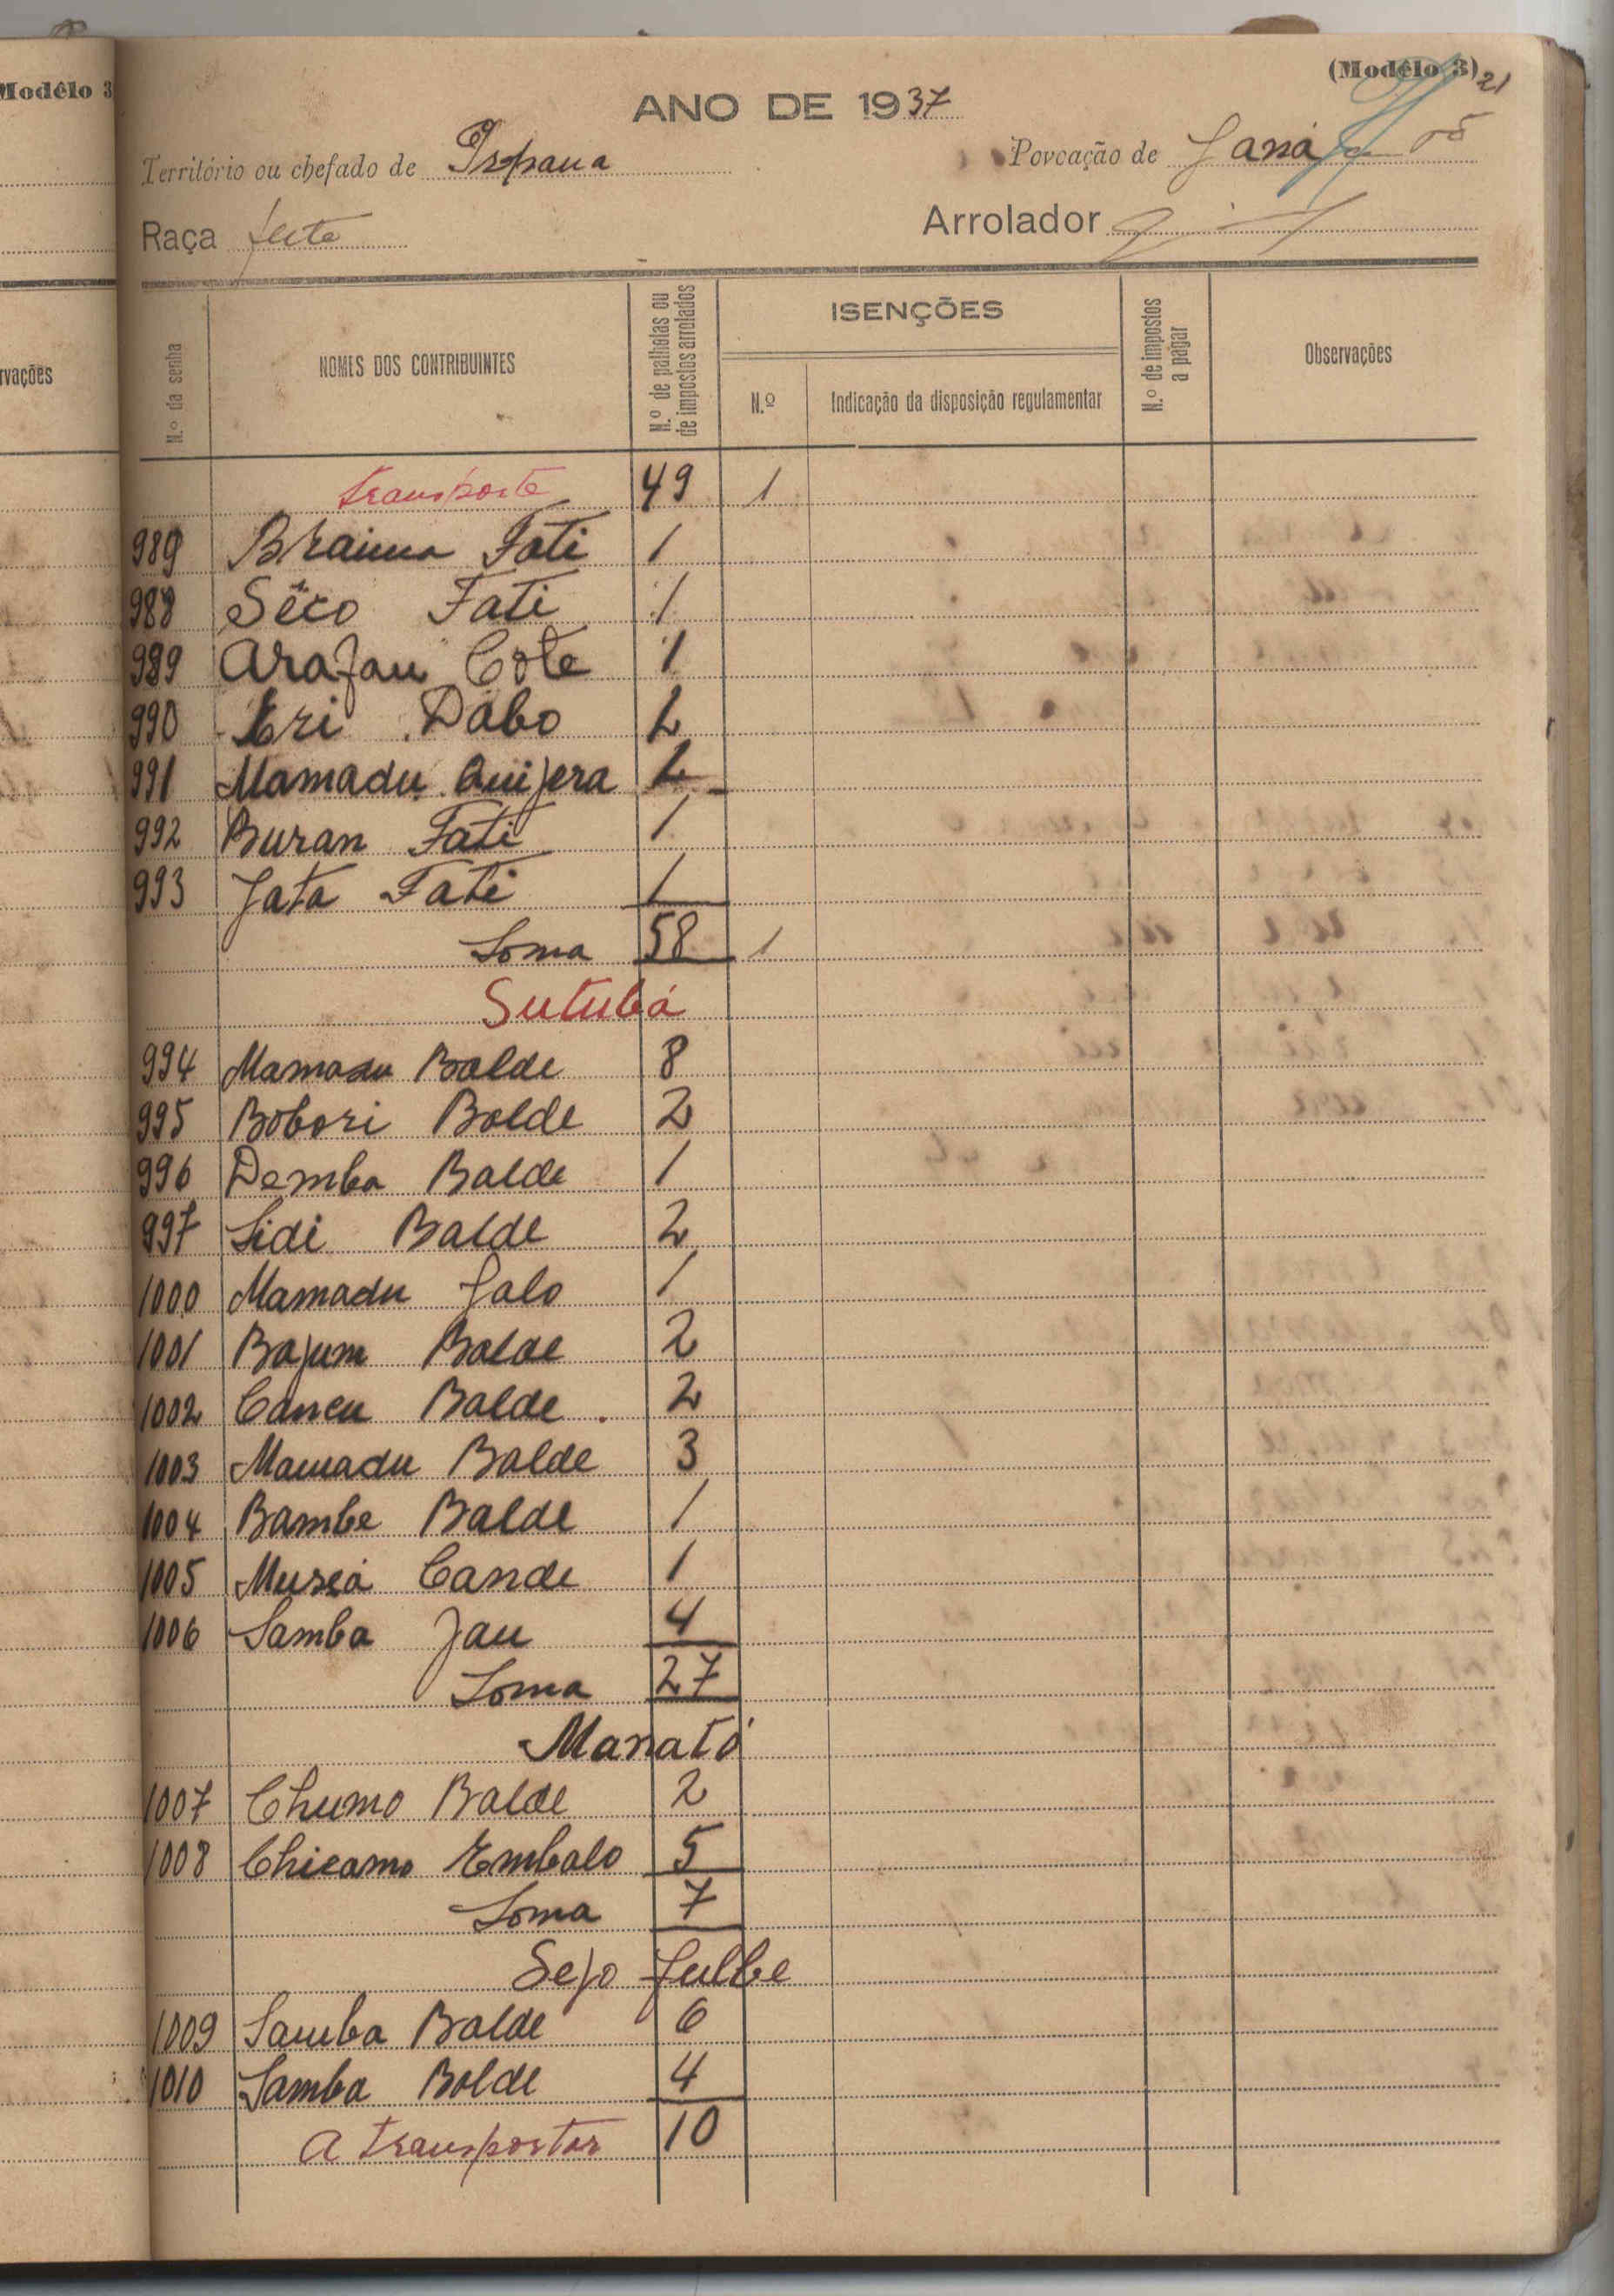 Modêlo 3
(Modêlo 3)
21
ANO DE 1937
Território ou chefado de
Povoação de Janá
Raça
Arrolador
rvações
N.º da senha
NOMES DOS CONTRIBUINTES
N.º de palhotas ou de impostos arrolados
ISENÇÕES
N.º
Indicação da disposição regulamentar
N.º de impostos a pagar
Observações
transporte 49 1
989 Braima Fati 1
988 Sêco Fati 1
989 Arafan Cote 1
990 Dabo 2
991 Mamadu Quijera 2
992 Buran Fati 1
993 Jata Fati 1
Soma 58 1
Sutubá
994 Mamadu Balde 8
995 Bobori Balde 2
996 Demba Balde 1
997 Sidi Balde 2
1000 Mamadu Jalo 1
1001 Bajum Balde 2
1002 Balde 2
1003 Mamadu Balde 3
1004 Bambe Balde 1
1005 Cande 1
1006 Samba Jau 4
Soma 27
Manató
1007 Chumo Balde 2
1008 Chicamo Embalo 5
Soma 7
Sejo fulbe
1009 Samba Balde 6
1010 Samba Balde 4
A transportar 10